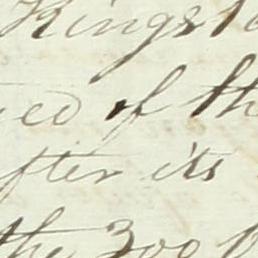 Kingst
ied of th
after its
the 300